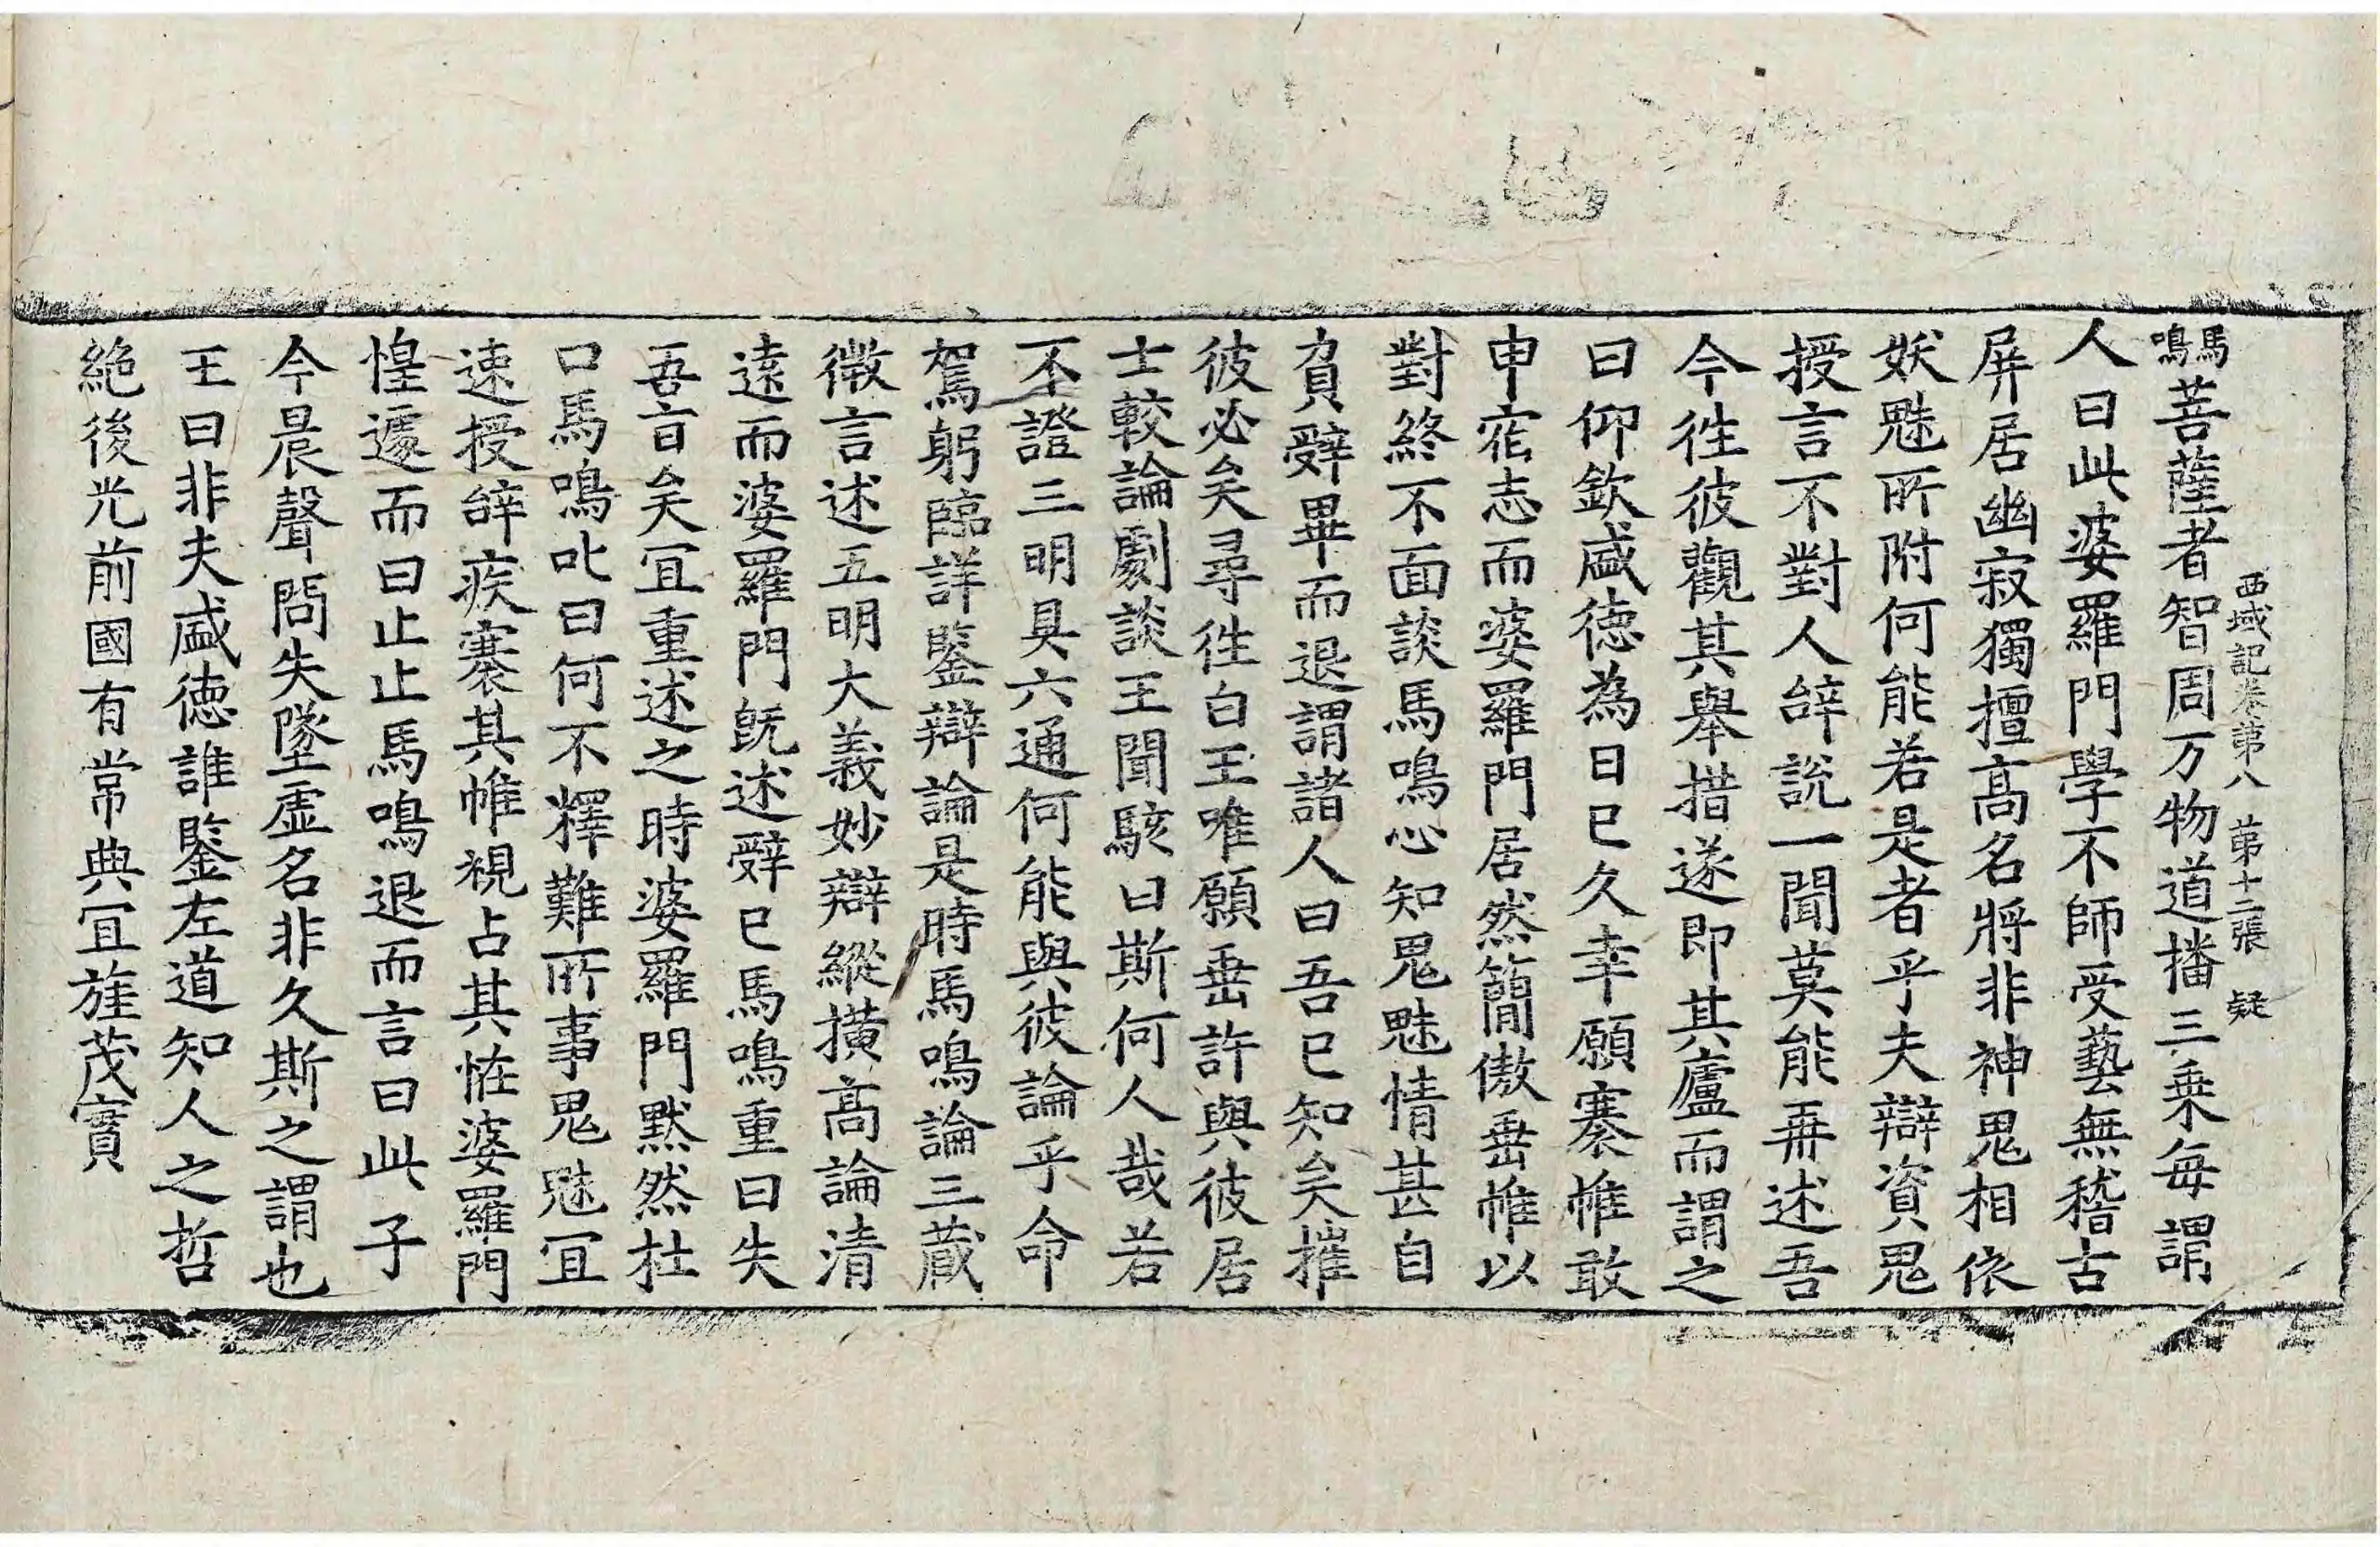 西域記卷第八 第十二張 疑
馬鳴菩薩者智周万物道播三乗每謂
人曰此婆羅門學不師受藝無稽古
屏居幽寂獨擅高名將非神鬼相依
妖魅所附何能若是者乎夫辯資鬼
授言不對人辝說一聞莫能再述吾
今往彼觀其舉措遂即其廬而謂之
曰仰欽盛德為日已久幸願褰帷敢
申宿志而婆羅門居然簡傲垂帷以
對終不面談馬鳴心知鬼魅情甚自
負辤畢而退謂諸人曰吾已知矣摧
彼必矣尋往白王唯願垂許與彼居
士較論劇談王聞駭曰斯何人哉若
不證三明具六通何能與彼論乎命
駕躬臨詳鑒辯論是時馬鳴論三藏
微言述五明大義妙辯縱撗高論清
遠而婆羅門旣述辤已馬鳴重曰失
吾旨矣冝重述之時婆羅門默然杜
口馬鳴叱曰何不釋難所事鬼魅冝
速授辝疾褰其帷視占其恠婆羅門
惶遽而曰止止馬鳴退而言曰此子
今晨聲問失墜虛名非久斯之謂也
王曰非夫盛德誰鑒左道知人之哲
絶後光前國有常典冝旌茂實